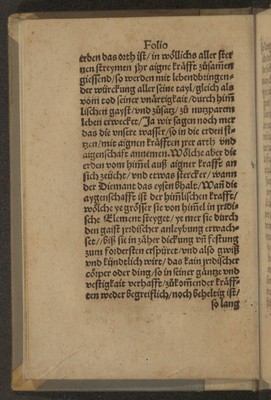 Folio
erden das orth ist/ in wöllichs aller ster
nen streymen jhr aigne kräfft zůsamen
giessend/ so werden mit lebendbringen-
der würckung aller seine tayl/ gleich als
vom tod seiner vnärtigkait/ durch him̃
lischen gayst/ vnd zůsatz/ zů nutzparem
leben erwecket/ Ja wir sagen noch mer
das die vnsere wasser/ so in die erden si-
tzen/ mit aignen kräfften jrer arth vnd
aigenschafft annemen. Wölche aber die
erden vom him̃el auß aigne krafft an
sich zeücht/ vnd etwas stercker/ wann
der Diemant das eysen behalt. Wañ die
aygenschafft ist der him̃lischen krafft/
wölche ye grösser sie von him̃el in jrdi-
sche Element steyget/ ye mer sie durch
den gaist jrdischer anleybung erwach-
set/ biß sie in zäher dickung vñ festung
zum fordersten erspüret/ vnd also gwiß
vnd kündtlich wirt/ das kain jrdischer
cörper oder ding/ so in seiner gäntze vnd
vestigkait verhafft/ zůkom̃ender kräff-
ten weder begreiflich/ noch beheltig ist/
so lang